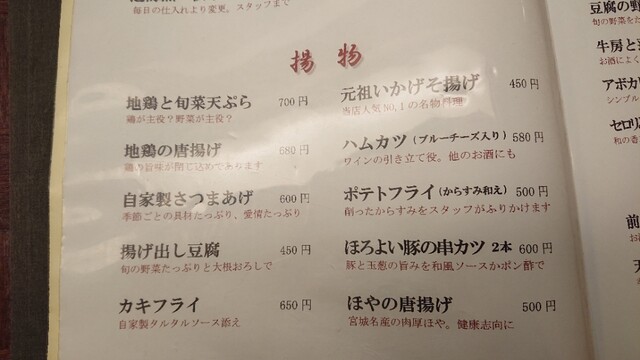 毎日の仕入れより変更。スタッフまで
揚物
地鶏と旬菜天ぷら 700円
鶏が主役？野菜が主役？
地鶏の唐揚げ 680円
鶏の旨味が閉じ込めてあります
自家製さつまあげ 600円
季節ごとの具材たっぷり、愛情たっぷり
揚げ出し豆腐 450円
旬の野菜たっぷりと大根おろしで
カキフライ 650円
自家製タルタルソース添え
元祖いかげそ揚げ 450円
当店人気NO,1の名物料理
ハムカツ（ブルーチーズ入り） 580円
ワインの引き立て役。他のお酒にも
ポテトフライ（からすみ和え） 500円
削ったからすみをスタッフがふりかけます
ほろよい豚の串カツ 2本 600円
豚と玉葱の旨みを和風ソースかポン酢で
ほやの唐揚げ 500円
宮城名産の肉厚ほや。健康志向に
豆腐の野
旬の野菜をた
牛房と
お酒によく
アボカ
シンプル
セロリ
和の香
前
お酒